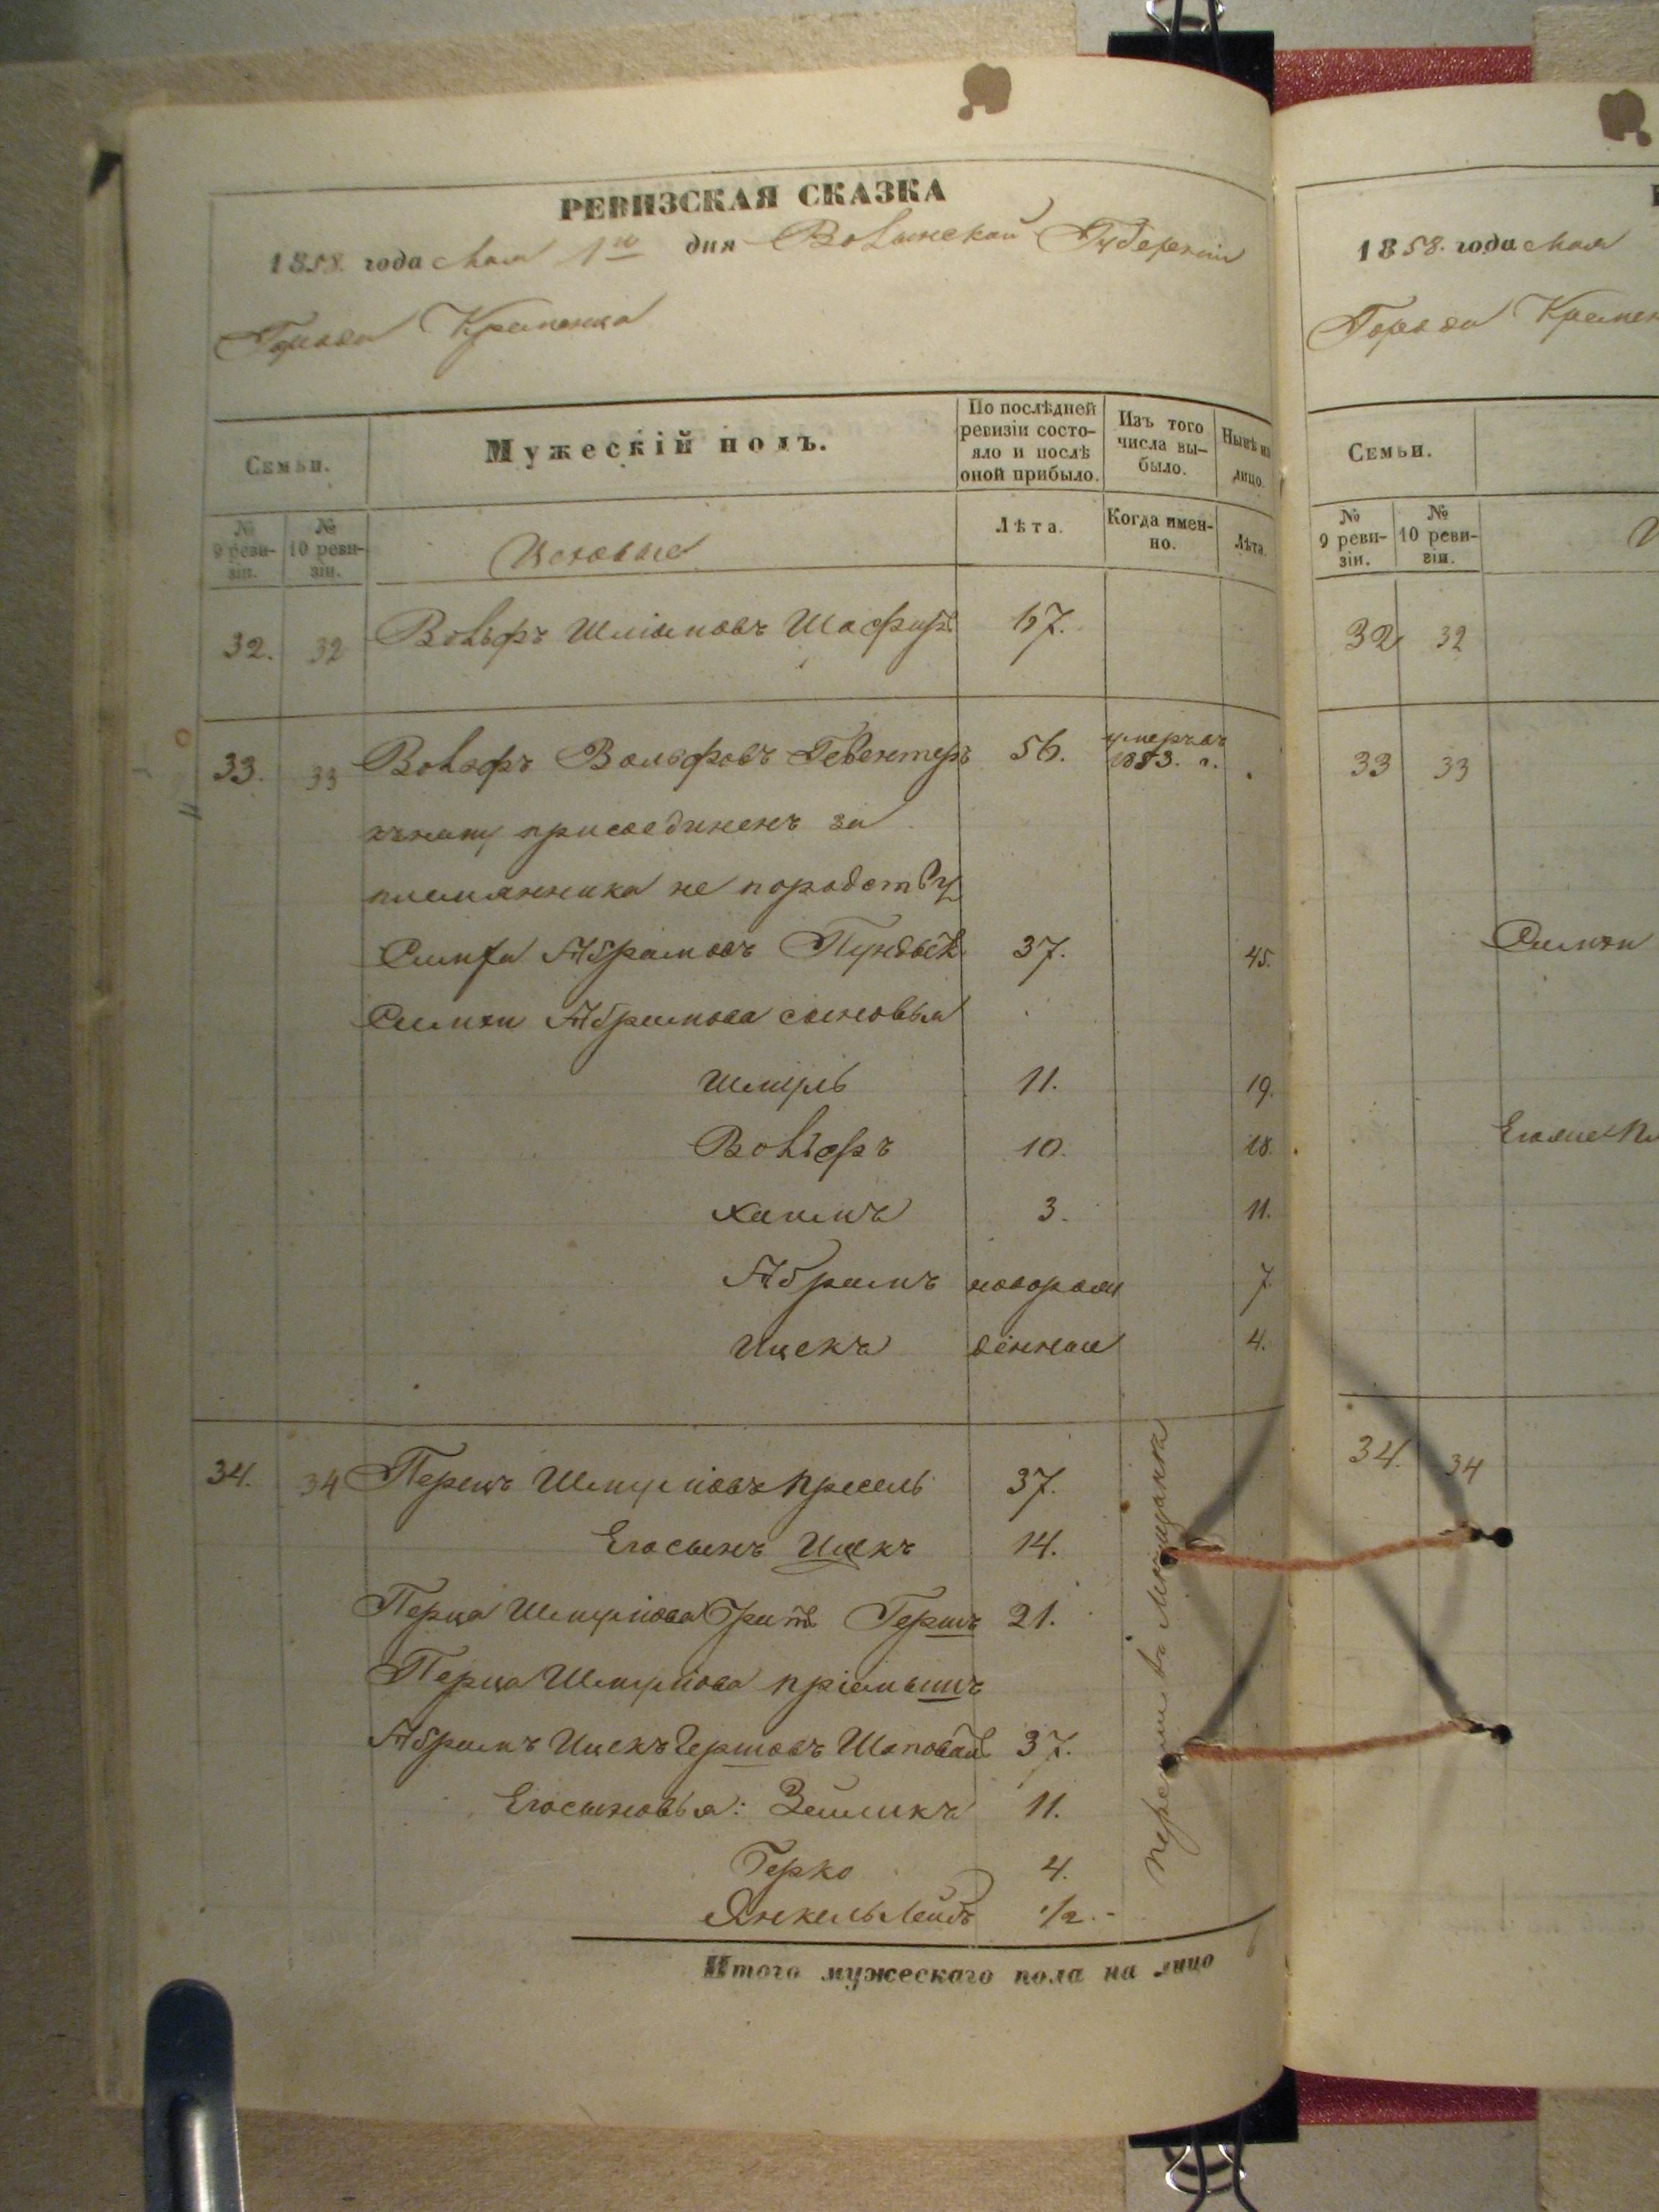 РЕВИЗСКАЯ СКАЗКА
1858. года Мая 1го дня Волынской Губерніи
Города Кременца
Семьи.
Мужескій полъ.
По послѣдней ревизіи состо-
яло и послѣ оной прибыло.
Изъ того числа вы-
было.
Нынѣ на лицо.
№ 9 реви-
зіи.
№ 10 реви-
зіи.
Цеховые
Лѣта.
Когда имен-
но.
Лѣта.
32. 32 Вольфъ Шліомовъ 57.
33. 33 Вольфъ Вольфовъ 56. умеръ въ 1853. г.
къ нему присоединенъ за
племянника не породству
Симха Абрамовъ 37. 45.
Симхи Абрамова сыновья
Шмуль 11. 19.
Вольфъ 10. 18.
Хаимъ 3. 11.
Абрамъ новорож 7.
Ицекъ денные 4.
34. 34 Перецъ Шмуліовъ Пресель 37.
Его сынъ Ицекъ 14.
Перца Шмуліова братъ Гершъ 21.
Перца Шмуліова пріемышъ
Абрамъ Ицекъ Гершовъ 37.
Его сыновья: Зейликъ 11.
Герко 4.
Янкель Лейбъ 1/2.-
въ Мещанка
Итого мужескаго пола на лицо
1858. года Мая
Города Кремен
Семьи.
№ 9 реви-
зіи.
№ 10 реви-
зіи.
32 32
33 33
Симхи
34. 34